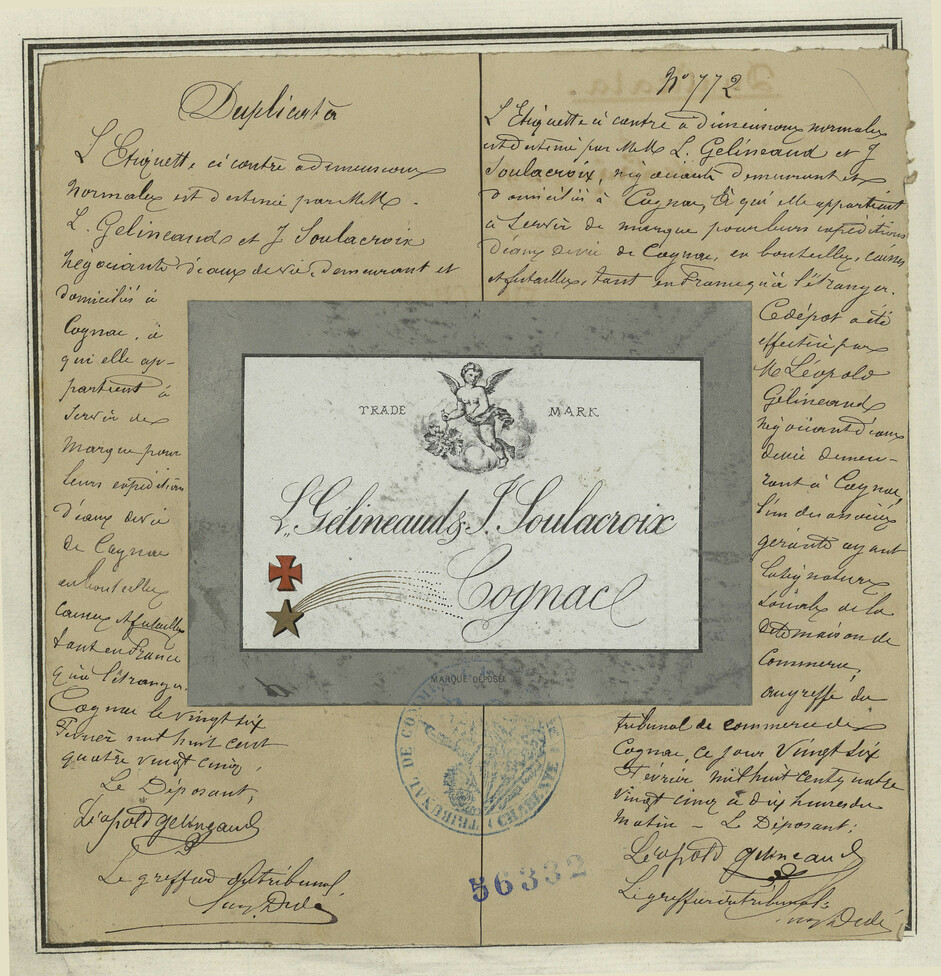 Duplicata
L'Etiquette ci contre a dimensions
normales est destinée par MM.
L. Gélineaud et J Soulacroix
négociants d'eaux de vie, demeurant et
domiciliés à
Cognac, à
qui elle ap-
partient à
servir de
marque pour
leurs expéditions
d'eaux de vie
de Cognac
en bouteilles
caisses et futailles
tant en France
qu'à l'étranger.
Cognac le vingt six
Février mil huit cent
quatre vingt cinq,
Le Déposant,
Léopold Gelineaud
Le greffier du tribunal,
N° 772
L'Etiquette ci contre a dimensions normales
est destiné par MM L. Gélineaud et J
Soulacroix, négociants demeurant et
domiciliés à Cognac, Et qui elle appartient
à servir de marque pour leurs expéditions
d'eaux de vie de Cognac, en bouteilles, caisses
et futailles, tant en France qu'à l'étranger.
Ce dépot a été
effectué par
M Léopold
Gélineaud
négociant d'eaux
de vie demeu-
rant à Cognac,
l'un des associés
gérants ayant
la signature
sociale de la
dite maison de
Commerce,
au greffe du
tribunal de commerce de
Cognac, ce jour Vingt six
Février mil huit cent quatre
vingt cinq à dix heures du
matin - Le Déposant;
Léopold Gelineaud
Le greffier du tribunal:
TRADE MARK
L. Gélineaud & J. Soulacroix
Cognac
MARQUE DÉPOSÉE
TRIBUNAL DE COM
56332